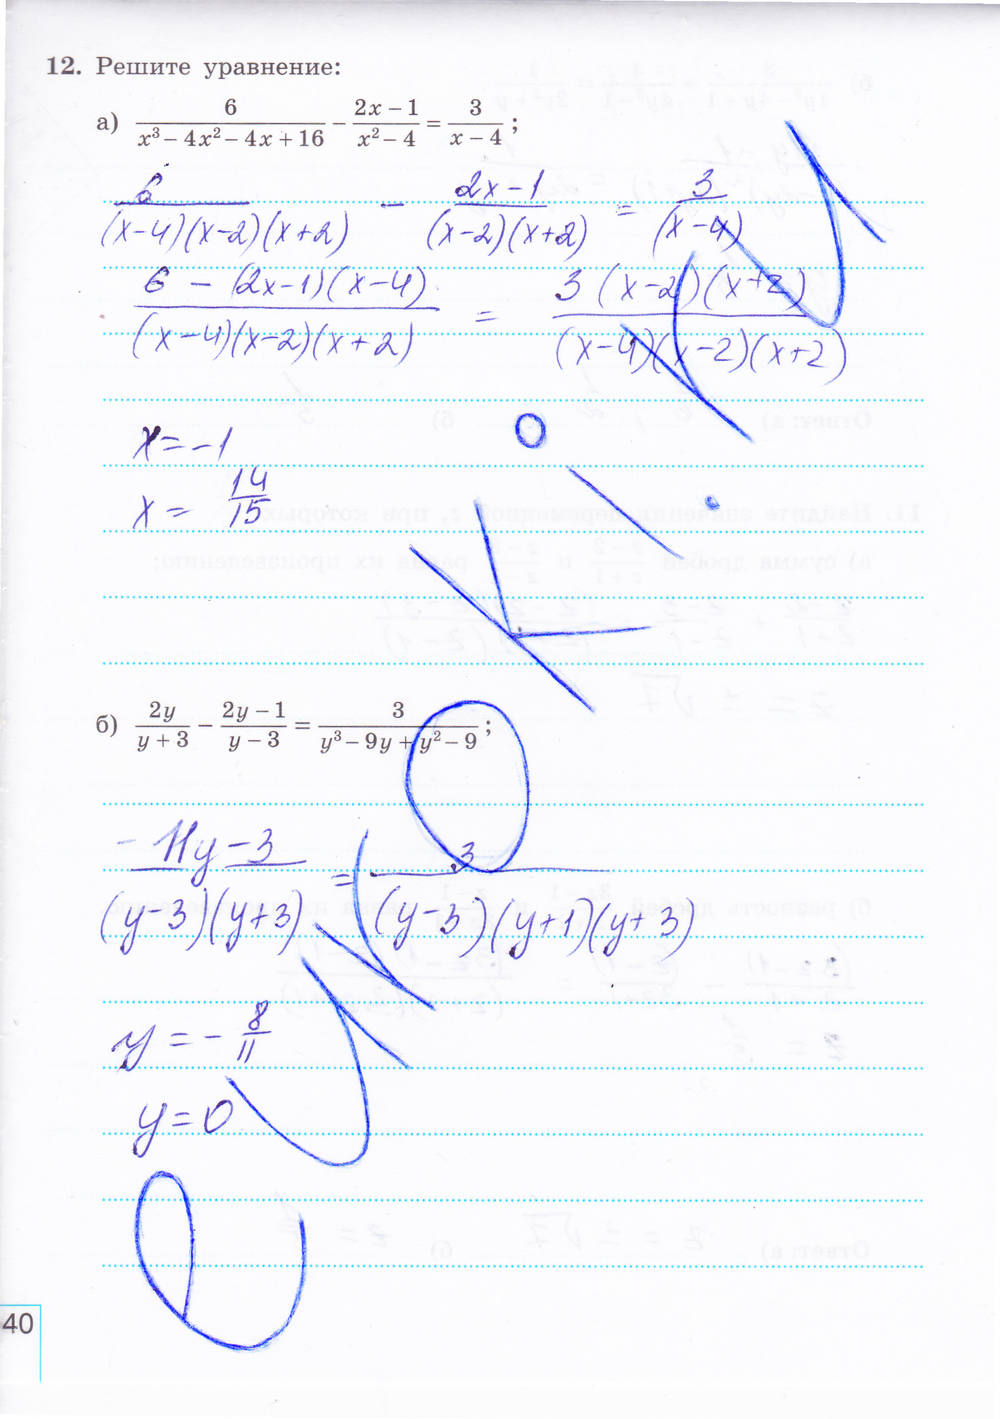 12. Решите уравнение:
а) 6/(x³ − 4x² − 4x + 16) − (2x − 1)/(x² − 4) = 3/(x − 4);
6/((x-4)(x-2)(x+2)) − (2x-1)/((x-2)(x+2)) = 3/(x-4)
(6 − (2x-1)(x-4))/((x-4)(x-2)(x+2)) = 3(x-2)(x+2)/((x-4)(x-2)(x+2))
x = -1
x = 14/15
б) 2y/(y + 3) − (2y − 1)/(y − 3) = 3/(y³ − 9y + y² − 9);
-11y-3/((y-3)(y+3)) = 3/((y-3)(y+1)(y+3))
y = - 8/11
y = 0
40